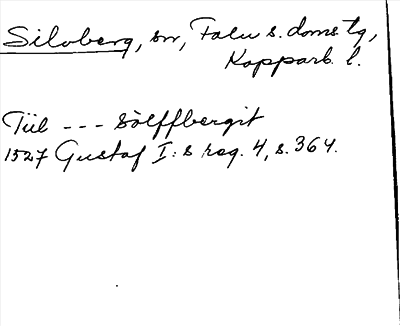 Silvberg, sn, Falu s. doms tg,
Kopparb. l.
Tiil --- Sölffbergit
1527 Gustaf I:s reg. 4, s. 364.